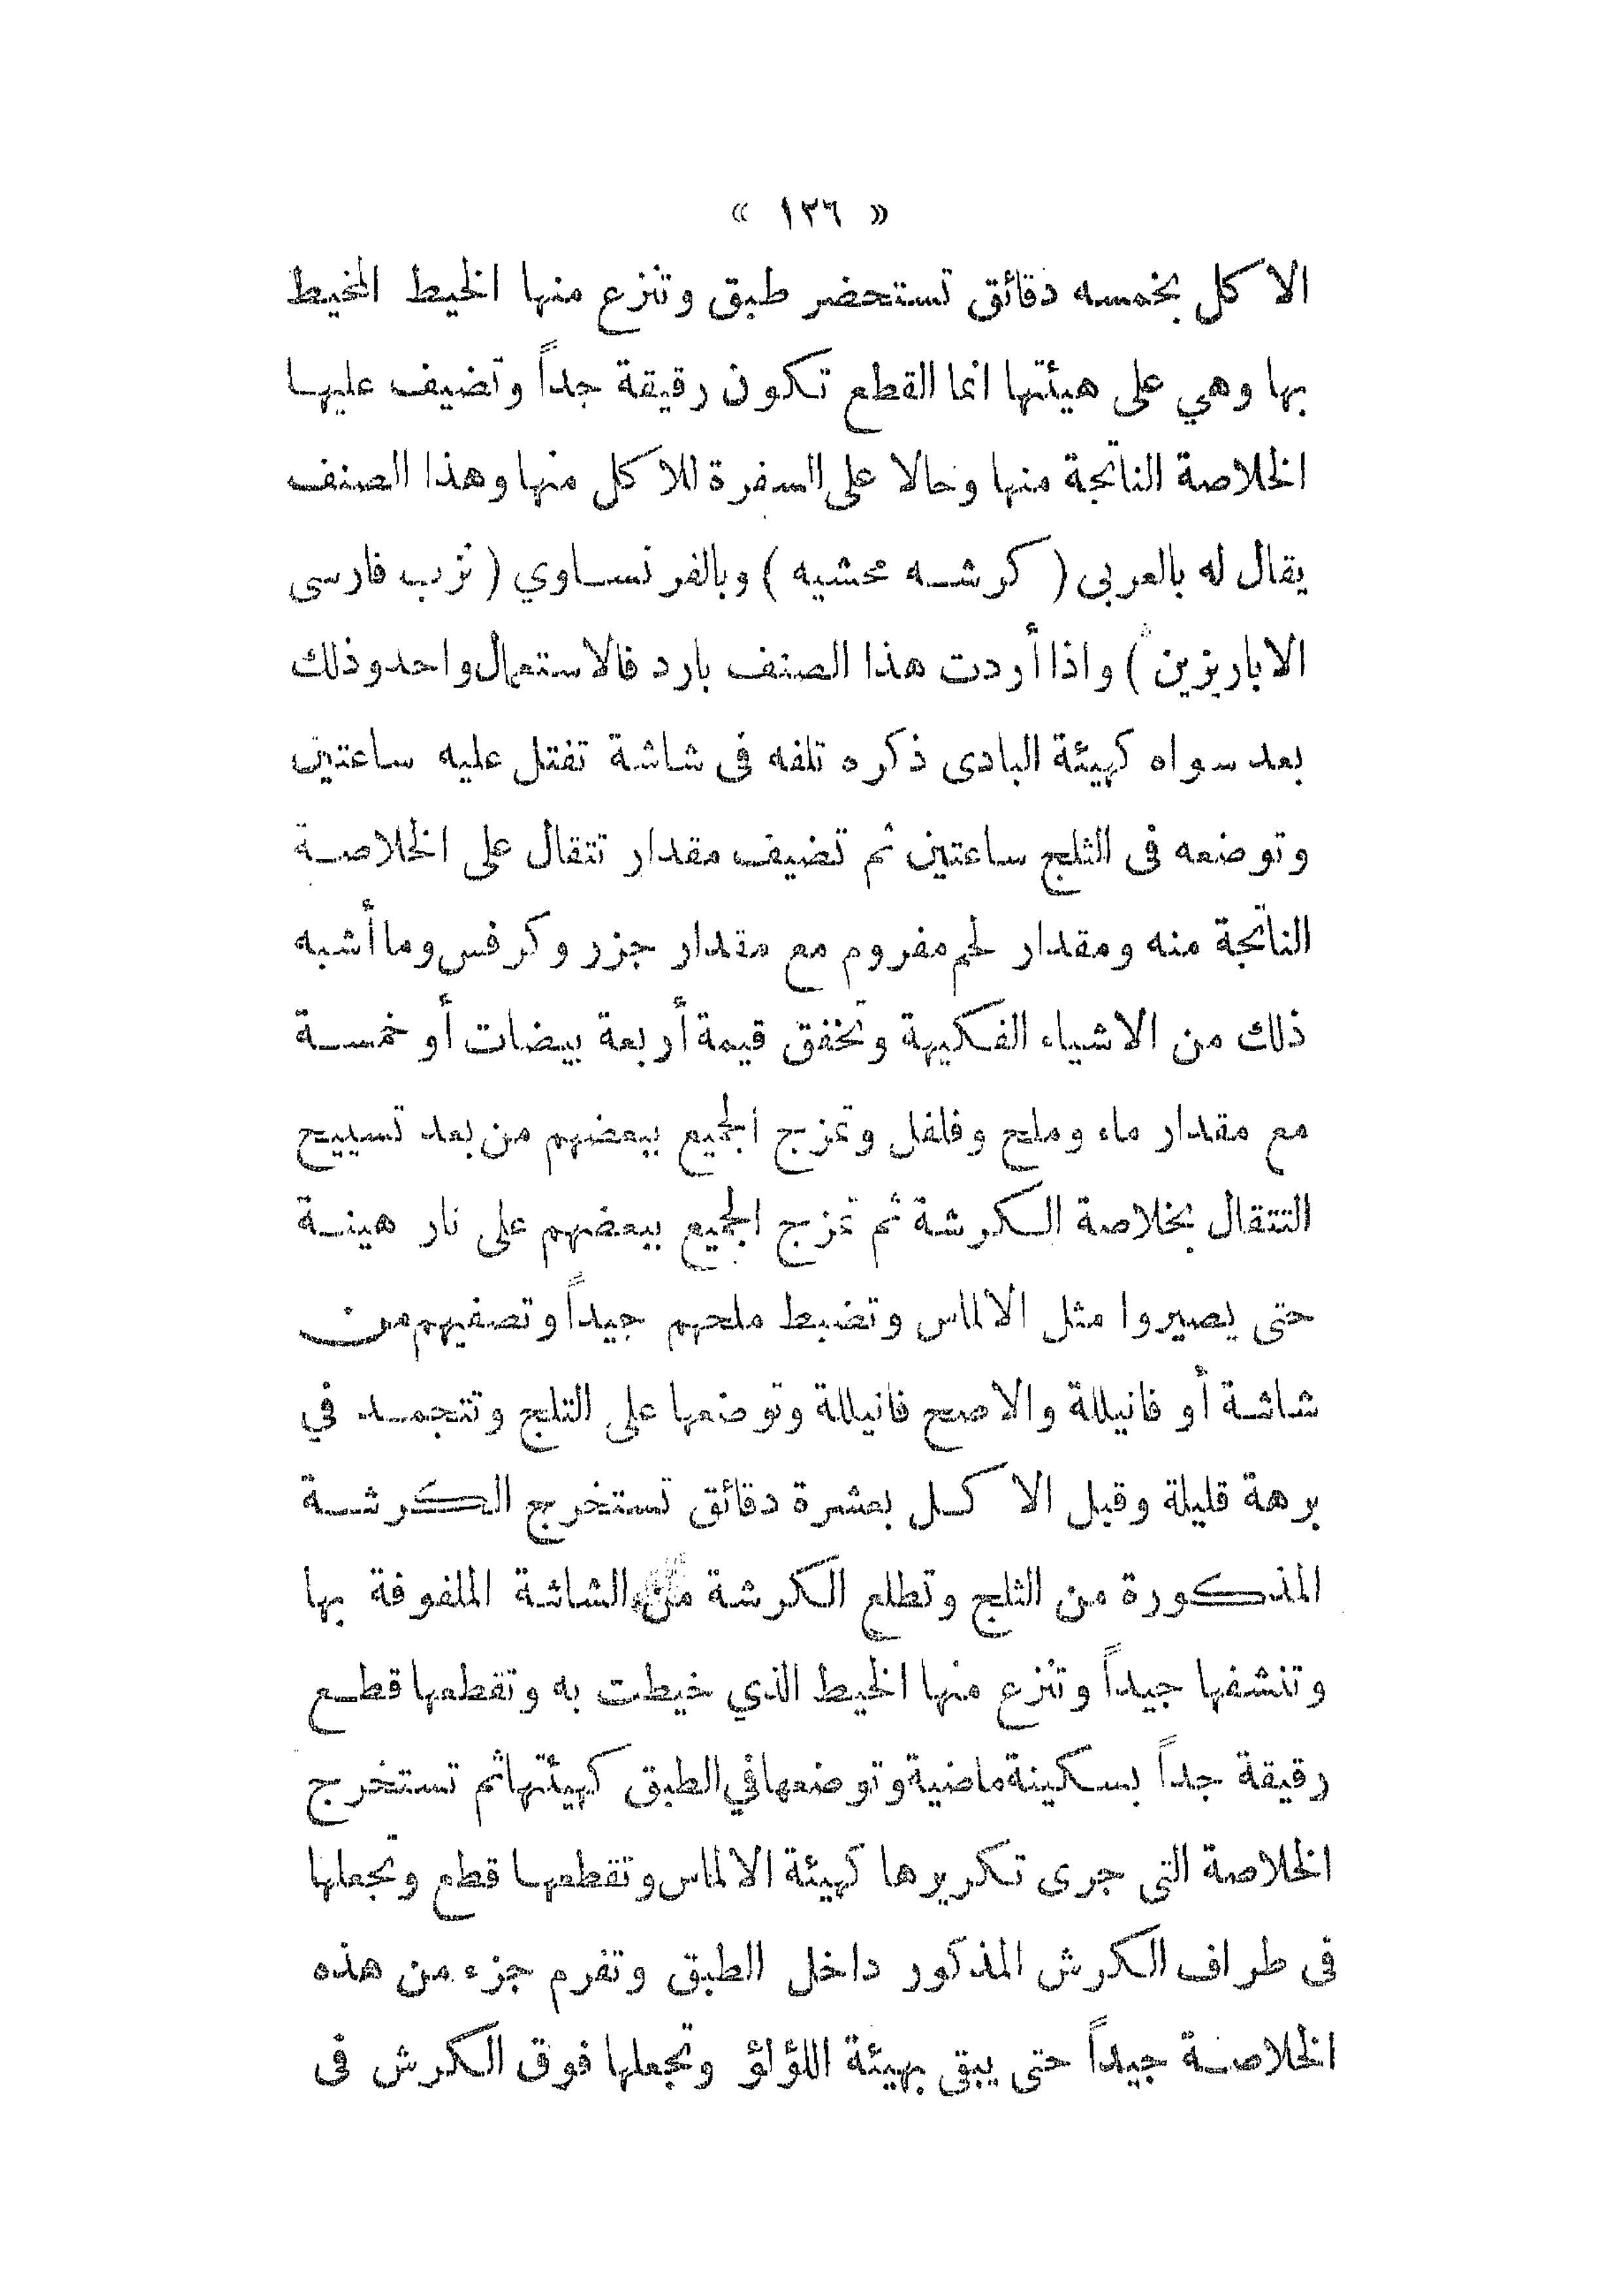 « ١٢٦ »
الاكل بخمسه دقائق تستحضر طبق وتنزع منها الخيط المخيط
بها وهي على هيئتها انما القطع تكون رقيقة جداً وتضيف عليها
الخلاصة الناتجة منها وحالا على السفرة للاكل منها وهذا الصنف
يقال له بالعربى ( كرشه محشيه ) وبالفرنساوي ( ترب فارسى
الاباريزين ) واذا أردت هذا الصنف بارد فالاستعمال واحد وذلك
بعد سواه كهيئة البادى ذكره تلفه فى شاشة تفتل عليه ساعتين
وتوضعه فى الثلج ساعتين ثم تضيف مقدار تتقال على الخلاصة
الناتجة منه ومقدار لحم مفروم مع مقدار جزر وكرفس وما أشبه
ذلك من الاشياء الفكيهة وتخفق قيمة أربعة بيضات أو خمسة
مع مقدار ماء وملح وفلفل وتمزج الجميع ببعضهم من بعد تسييح
التتقال بخلاصة الكرشة ثم تمزج الجميع ببعضهم على نار هينة
حتى يصيروا مثل الالماس وتضبط ملحهم جيداً وتصفيهم من
شاشة أو فانيللة والاصح فانيللة وتوضعها على التلج وتتجمد في
برهة قليلة وقبل الاكل بعشرة دقائق تستخرج الكرشة
المذكورة من الثلج وتطلع الكرشة من الشاشة الملفوفة بها
وتنشفها جيداً وتنزع منها الخيط الذي خيطت به وتقطعها قطع
رقيقة جداً بسكينة ماضية وتوضعها في الطبق كهيئتها ثم تستخرج
الخلاصة التى جرى تكريرها كهيئة الالماس وتقطعها قطع وتجعلها
فى طراف الكرش المذكور داخل الطبق وتفرم جزء من هذه
الخلاصة جيداً حتى يبقى بهيئة اللؤلؤ وتجعلها فوق الكرش فى